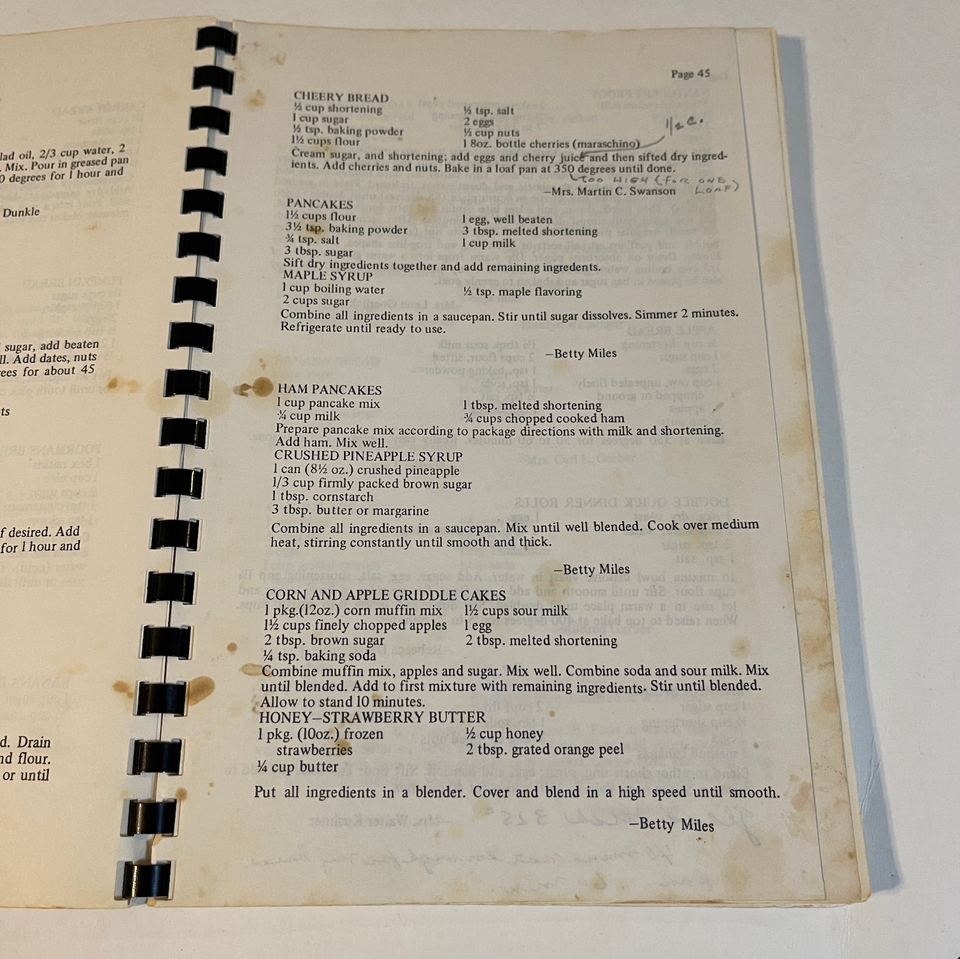 lad oil, 2/3 cup water, 2
Mix. Pour in greased pan
0 degrees for 1 hour and
Dunkle
sugar, add beaten
ll. Add dates, nuts
ees for about 45
ts
f desired. Add
for 1 hour and
d. Drain
nd flour.
or until
Page 45
CHEERY BREAD
½ cup shortening ½ tsp. salt
1 cup sugar 2 eggs
½ tsp. baking powder ½ cup nuts
1½ cups flour 1 8oz. bottle cherries (maraschino) 1/2 c.
Cream sugar, and shortening; add eggs and cherry juice and then sifted dry ingred-
ients. Add cherries and nuts. Bake in a loaf pan at 350 degrees until done.
TOO HIGH (FOR ONE
LOAF)
—Mrs. Martin C. Swanson
PANCAKES
1½ cups flour 1 egg, well beaten
3½ tsp. baking powder 3 tbsp. melted shortening
¾ tsp. salt 1 cup milk
3 tbsp. sugar
Sift dry ingredients together and add remaining ingredents.
MAPLE SYRUP
1 cup boiling water ½ tsp. maple flavoring
2 cups sugar
Combine all ingredients in a saucepan. Stir until sugar dissolves. Simmer 2 minutes.
Refrigerate until ready to use.
—Betty Miles
HAM PANCAKES
1 cup pancake mix 1 tbsp. melted shortening
¾ cup milk ¾ cups chopped cooked ham
Prepare pancake mix according to package directions with milk and shortening.
Add ham. Mix well.
CRUSHED PINEAPPLE SYRUP
1 can (8½ oz.) crushed pineapple
1/3 cup firmly packed brown sugar
1 tbsp. cornstarch
3 tbsp. butter or margarine
Combine all ingredients in a saucepan. Mix until well blended. Cook over medium
heat, stirring constantly until smooth and thick.
—Betty Miles
CORN AND APPLE GRIDDLE CAKES
1 pkg.(12oz.) corn muffin mix 1½ cups sour milk
1½ cups finely chopped apples 1 egg
2 tbsp. brown sugar 2 tbsp. melted shortening
¼ tsp. baking soda
Combine muffin mix, apples and sugar. Mix well. Combine soda and sour milk. Mix
until blended. Add to first mixture with remaining ingredients. Stir until blended.
Allow to stand 10 minutes.
HONEY—STRAWBERRY BUTTER
1 pkg. (10oz.) frozen ½ cup honey
strawberries 2 tbsp. grated orange peel
¼ cup butter
Put all ingredients in a blender. Cover and blend in a high speed until smooth.
—Betty Miles